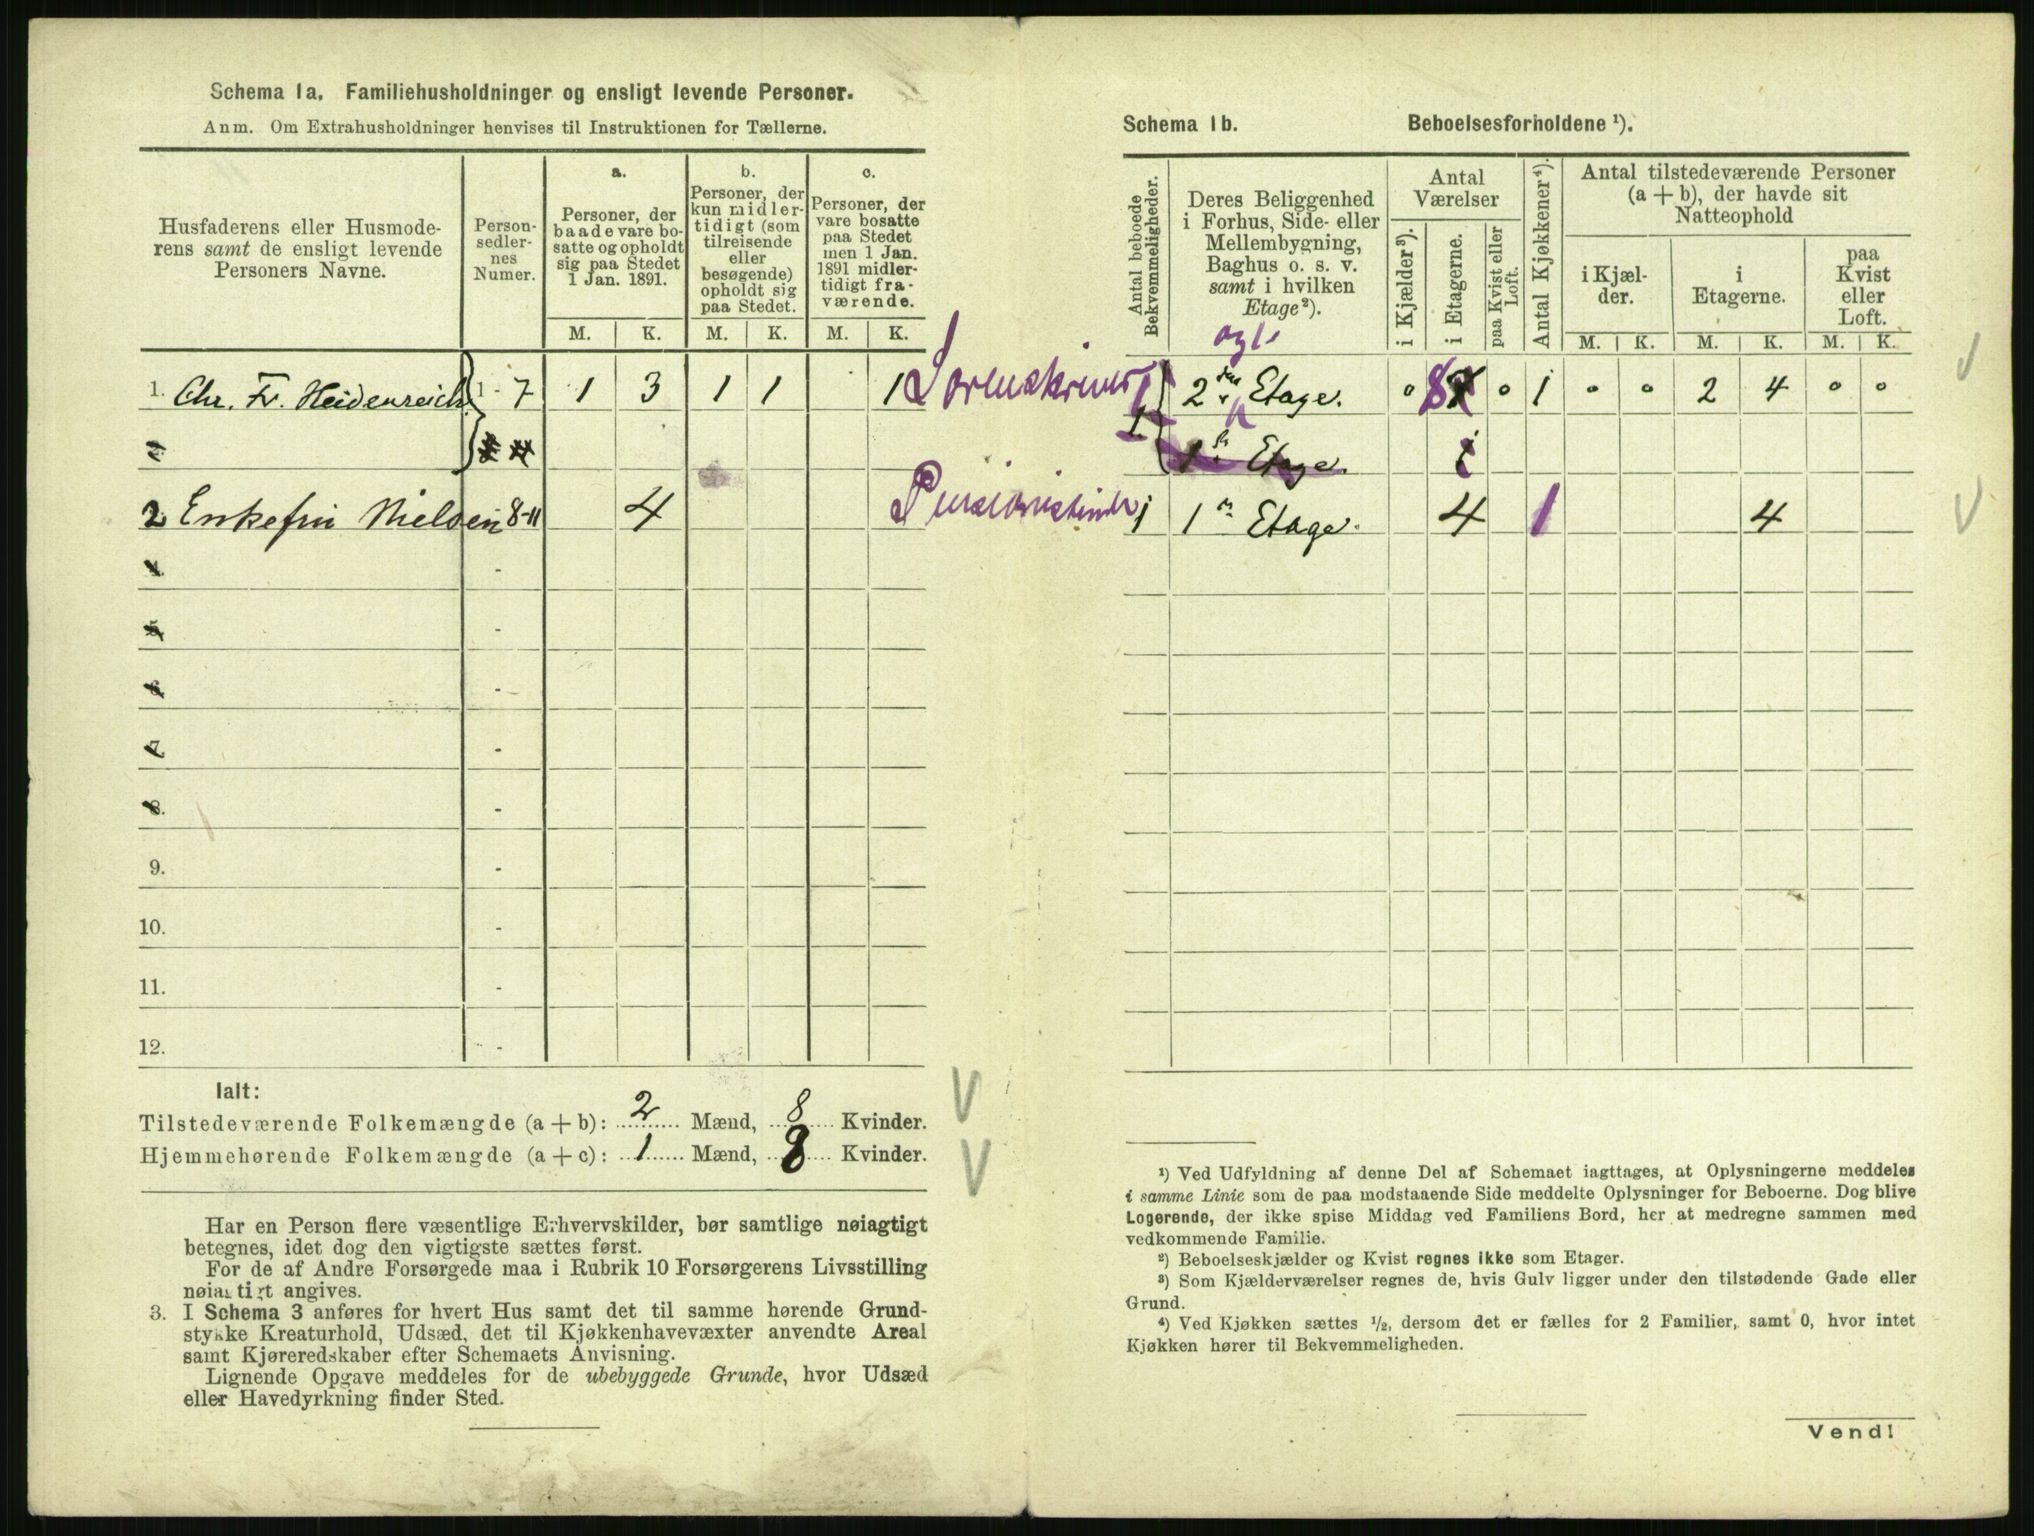 Schema 1a. Familiehusholdninger og ensligt levende Personer.
Anm. Om Extrahusholdninger henvises til Instruktionen for Tællerne.
Husfaderens eller Husmode-
rens samt de ensligt levende
Personers Navne.
Person-
sedler-
nes
Numer.
a.
Personer, der
baade vare bo-
satte og opholdt
sig paa Stedet
1 Jan. 1891.
b.
Personer, der
kun midler-
tidigt (som
tilreisende
eller
besøgende)
opholdt sig
paa Stedet.
c.
Personer, der
vare bosatte
paa Stedet
men 1 Jan.
1891 midler-
tidigt fra-
værende.
M. K. M. K. M. K.
1. Chr. Fr. Heidenreich 1 - 7 1 3 1 1 1 Sorenskriver
2 Enkefru Nielsen 8-11 4 Pensionistinde
4. -
5. -
6. -
7. -
8. -
9. -
10. -
11. -
12. -
Ialt:
Tilstedeværende Folkemængde (a + b): 2 Mænd, 8 Kvinder.
Hjemmehørende Folkemængde (a + c): 1 Mænd, 8 Kvinder.
Har en Person flere væsentlige Erhvervskilder, bør samtlige nøiagtigt
betegnes, idet dog den vigtigste sættes først.
For de af Andre Forsørgede maa i Rubrik 10 Forsørgerens Livsstilling
nøiagtigt angives.
3. I Schema 3 anføres for hvert Hus samt det til samme hørende Grund-
stykke Kreaturhold, Udsæd, det til Kjøkkenhavevæxter anvendte Areal
samt Kjøreredskaber efter Schemaets Anvisning.
Lignende Opgave meddeles for de ubebyggede Grunde, hvor Udsæd
eller Havedyrkning finder Sted.
Schema 1b. Beboelsesforholdene ¹).
Antal beboede
Bekvemmeligheder.
Deres Beliggenhed
i Forhus, Side- eller
Mellembygning,
Baghus o. s. v.
samt i hvilken
Etage²).
Antal
Værelser
i Kjælder³).
i Etagerne.
paa Kvist eller
Loft.
Antal Kjøkkener⁴).
Antal tilstedeværende Personer
(a + b), der havde sit
Natteophold
i Kjæl-
der.
i
Etagerne.
paa
Kvist
eller
Loft.
M. K. M. K. M. K.
og 1.
1 2den Etage. 0 8 0 1 0 0 2 4 0 0
1. 1ste Etage.
1 1ste Etage. 4 1 4
¹) Ved Udfyldning af denne Del af Schemaet iagttages, at Oplysningerne meddeles
i samme Linie som de paa modstaaende Side meddelte Oplysninger for Beboerne. Dog blive
Logerende, der ikke spise Middag ved Familiens Bord, her at medregne sammen med
vedkommende Familie.
²) Beboelseskjælder og Kvist regnes ikke som Etager.
³) Som Kjælderværelser regnes de, hvis Gulv ligger under den tilstødende Gade eller
Grund.
⁴) Ved Kjøkken sættes ½, dersom det er fælles for 2 Familier, samt 0, hvor intet
Kjøkken hører til Bekvemmeligheden.
Vend!